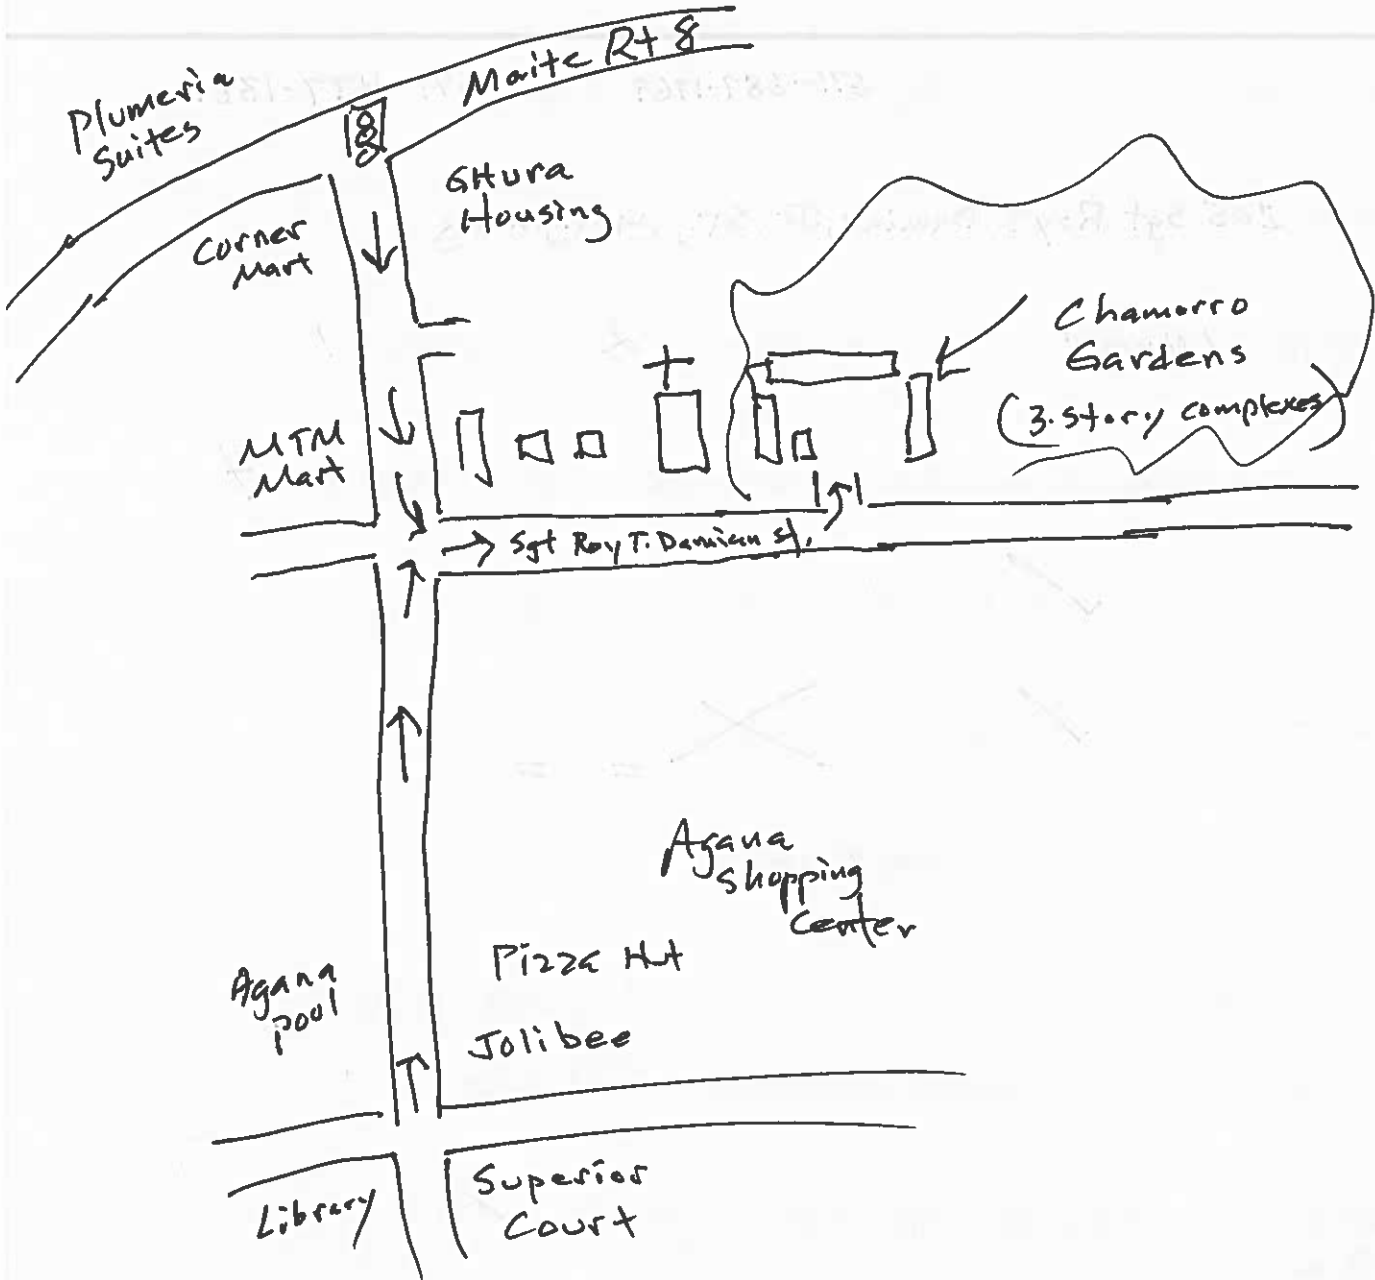 Maite Rt 8
Plumeria
Suites
GHura
Housing
Corner
Mart
Chamorro
Gardens
(3. story complexes)
MTM
Mart
Sgt Roy T. Damian St.
Agana
Shopping
Center
Pizza Hut
Agana
Pool
Jolibee
Superior
Court
Library